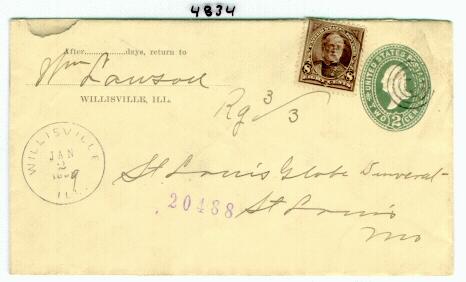 4834
After............days, return to
Wm Lawson
WILLISVILLE, ILL.
Rg 3/3
UNITED STATES POSTAGE
TWO 2 CENTS
WILLISVILLE
JAN
2
ILL.
St Louis Globe Democrat
20488
St Louis
Mo